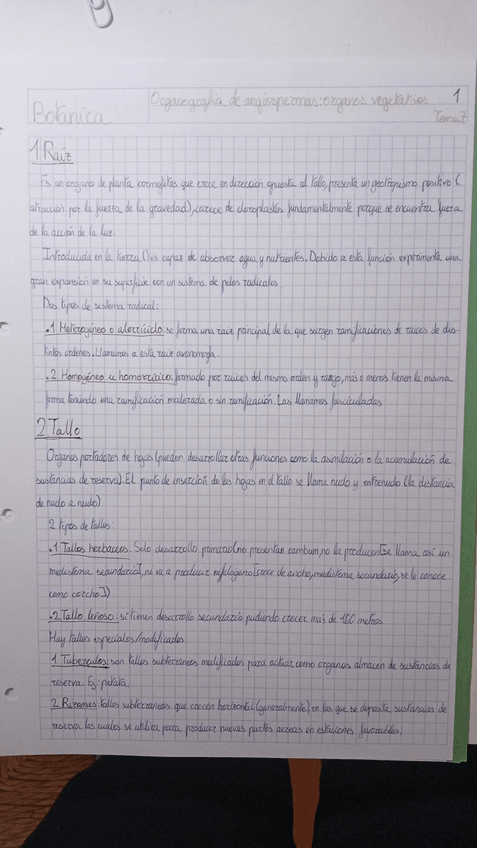 Organografia de angiospermas: organos vegetativos 1
Botánica Tema 7
1 Raiz
Es un organo de planta cormofitas que crece en dirección opuesta al tallo, presenta un geotropismo positivo (
atracción por la fuerza de la gravedad), carece de cloroplastos fundamentalmente porque se encuentra fuera
de la acción de la luz.
Introducida en la tierra () es capaz de absorver agua y nutrientes. Debido a esta función experimenta una
gran expansión en su superficie con un sistema de pelos radicales.
Dos tipos de sistema radical:
.1 Heterogéneo o alorrícico: se forma una raiz principal de la que surgen ramificaciones de raices de dis-
tintos ordenes. Llamamos a esta raiz axonomorfa.
.2 Homogéneo u homorrícico. formado por raices del mismo orden y rango, más o menos tienen la misma
forma teniendo una ramificación moderada o sin ramificación. Las llamamos fasciculadas
2 Tallo
Organos portadores de hojas (pueden desarrollar otras funciones como la asimilación o la acumulación de
sustancias de reserva). El punto de inserción de las hojas en el tallo se llama nudo y entrenudo (la distancia
de nudo a nudo)
2 tipos de tallos:
.1 Tallos herbaceos. Solo desarrollo primario (no presentan cambium, no la producen [se llama asi un
meristema secundario], ni va a producir [crece de ancho, meristema secundario, se le conoce
como corcho])
.2 Tallo leñoso: si tienen desarrollo secundario pudiendo crecer más de 100 metros
Hay tallos especiales/modificados
1 Tuberculos: son tallos subterraneos modificados para actuar como organos almacen de sustancias de
reserva. Ej: patata.
2 Rizomas tallos subterraneos que crecen horizontal (generalmente) en los que se deposita sustancias de
reserva las cuales se utiliza para producir nuevas partes aereas en estaciones favorables.